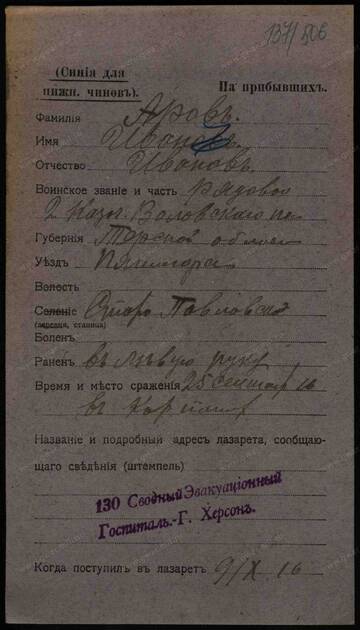 137/506
(Синія для
нижн. чиновъ).
На прибывшихъ.
Фамилія Аровъ.
Имя Иванъ
Отчество Ивановъ.
Воинское званіе и часть рядовой
2
Губернія Терской области
Уѣздъ Пятигорс
Волость
Селеніе Старо Павловской
(деревня, станица)
Боленъ
Раненъ въ лѣвую руку
Время и мѣсто сраженія 25 сентяб 16
въ Карпатах
Названіе и подробный адресъ лазарета, сообщаю-
щаго свѣдѣнія (штемпель)
130 Сводный Эвакуаціонный
Госпиталь.-Г. Херсонъ.
Когда поступилъ въ лазаретъ 9/X 16